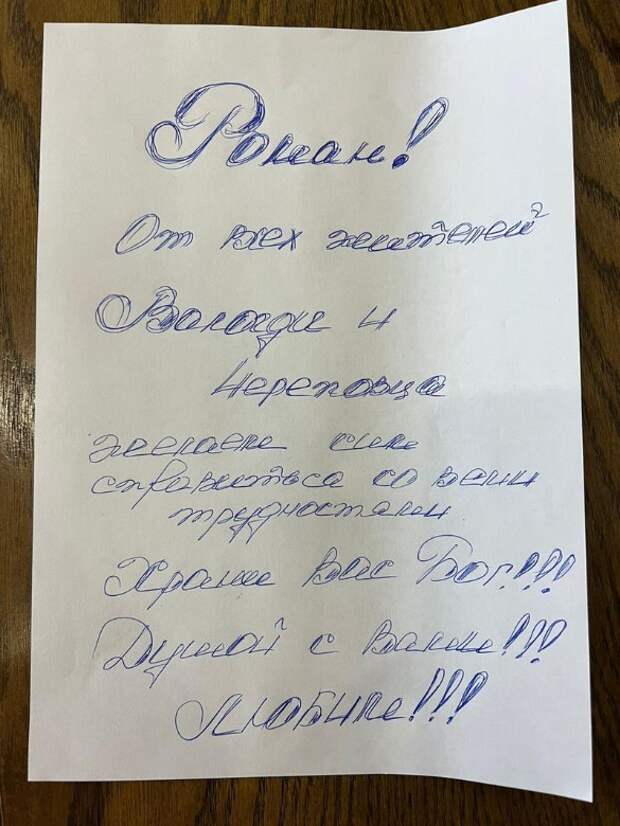 Роман!
От всех жителей
Вологды и
Череповца
желаем сил
справиться со всеми
трудностями
Храни Вас Бог!!!
Душой с Вами!!!
Любим!!!